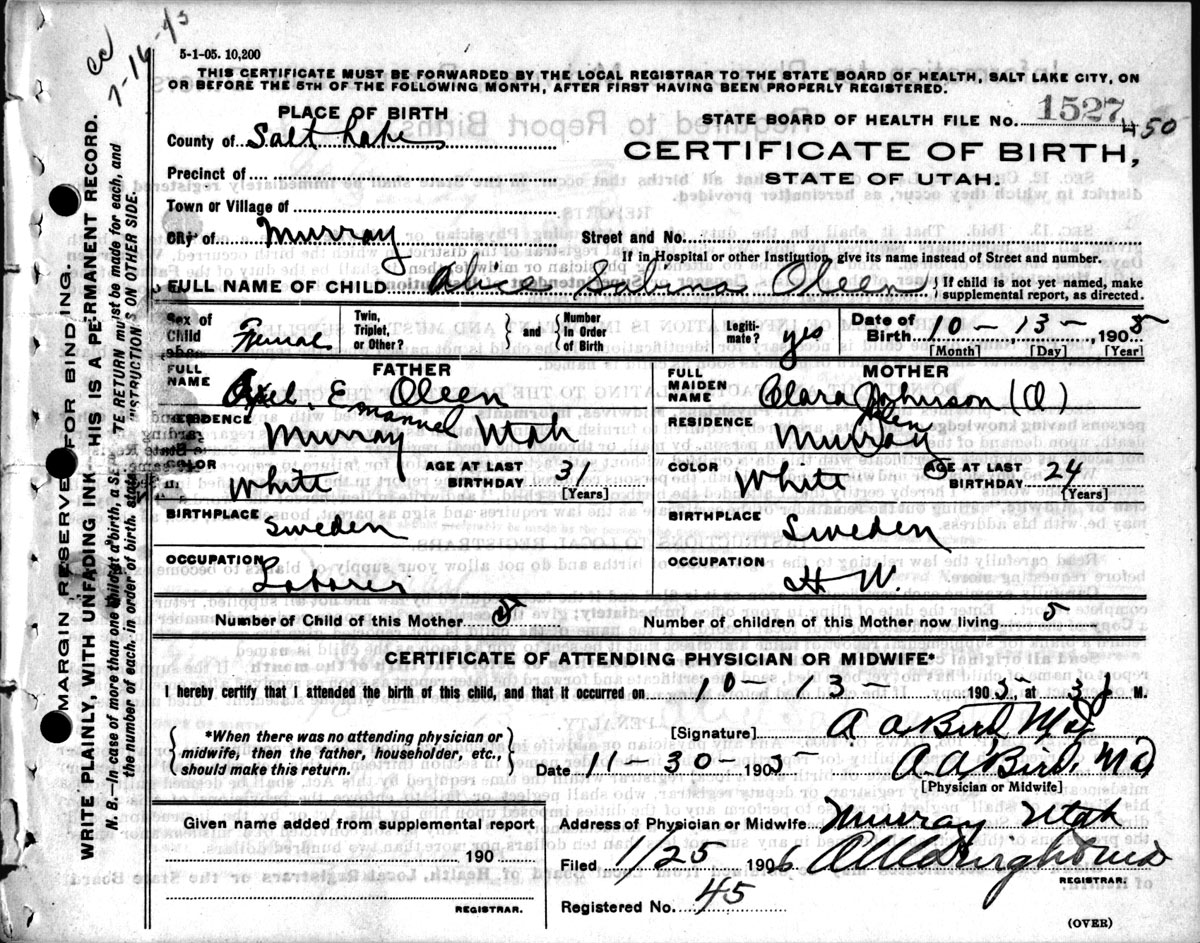 cc
7-16-43
5-1-05. 10,200
THIS CERTIFICATE MUST BE FORWARDED BY THE LOCAL REGISTRAR TO THE STATE BOARD OF HEALTH, SALT LAKE CITY, ON
OR BEFORE THE 5TH OF THE FOLLOWING MONTH, AFTER FIRST HAVING BEEN PROPERLY REGISTERED.
PLACE OF BIRTH
STATE BOARD OF HEALTH FILE NO. 1527 450
County of Salt Lake
CERTIFICATE OF BIRTH,
Precinct of
STATE OF UTAH.
Town or Village of
City of Murray Street and No.
If in Hospital or other Institution, give its name instead of Street and number.
FULL NAME OF CHILD Alice Sabina Oleen { If child is not yet named, make
supplemental report, as directed.
Sex of Child Femal Twin, Triplet, or Other? } and { Number in Order of Birth Legiti-mate? yes Date of Birth 10-13-1905
[Month] [Day] [Year]
FATHER
FULL NAME Axel E Oleen
Emanuel
RESIDENCE Murray Utah
COLOR White AGE AT LAST BIRTHDAY 31
[Years]
BIRTHPLACE Sweden
OCCUPATION Laborer
MOTHER
FULL MAIDEN NAME Clara Johnson (O)
RESIDENCE Murray
COLOR White AGE AT LAST BIRTHDAY 24
[Years]
BIRTHPLACE Sweden
OCCUPATION H W.
Number of Child of this Mother 5 Number of children of this Mother now living 5
CERTIFICATE OF ATTENDING PHYSICIAN OR MIDWIFE*
I hereby certify that I attended the birth of this child, and that it occurred on 10-13-1905, at 3 M.
{ *When there was no attending physician or
midwife, then the father, householder, etc.,
should make this return. }
[Signature] A A Bird Md
Date 11-30-1905 A A Bird, Md
[Physician or Midwife]
Given name added from supplemental report
190
REGISTRAR.
Address of Physician or Midwife Murray Utah
Filed 1/25 1906
REGISTRAR.
Registered No. 45
(OVER)
MARGIN RESERVED FOR BINDING.
WRITE PLAINLY, WITH UNFADING INK—THIS IS A PERMANENT RECORD.
N. B.—In case of more than one child at a birth, a SEPARATE RETURN must be made for each, and
the number of each, in order of birth, stated. INSTRUCTIONS ON OTHER SIDE.